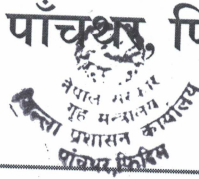 पाँचथर, फि
नेपाल सरकार
गृह मन्त्रालय
जिल्ला प्रशासन कार्यालय
पाँचथर, फिदिम